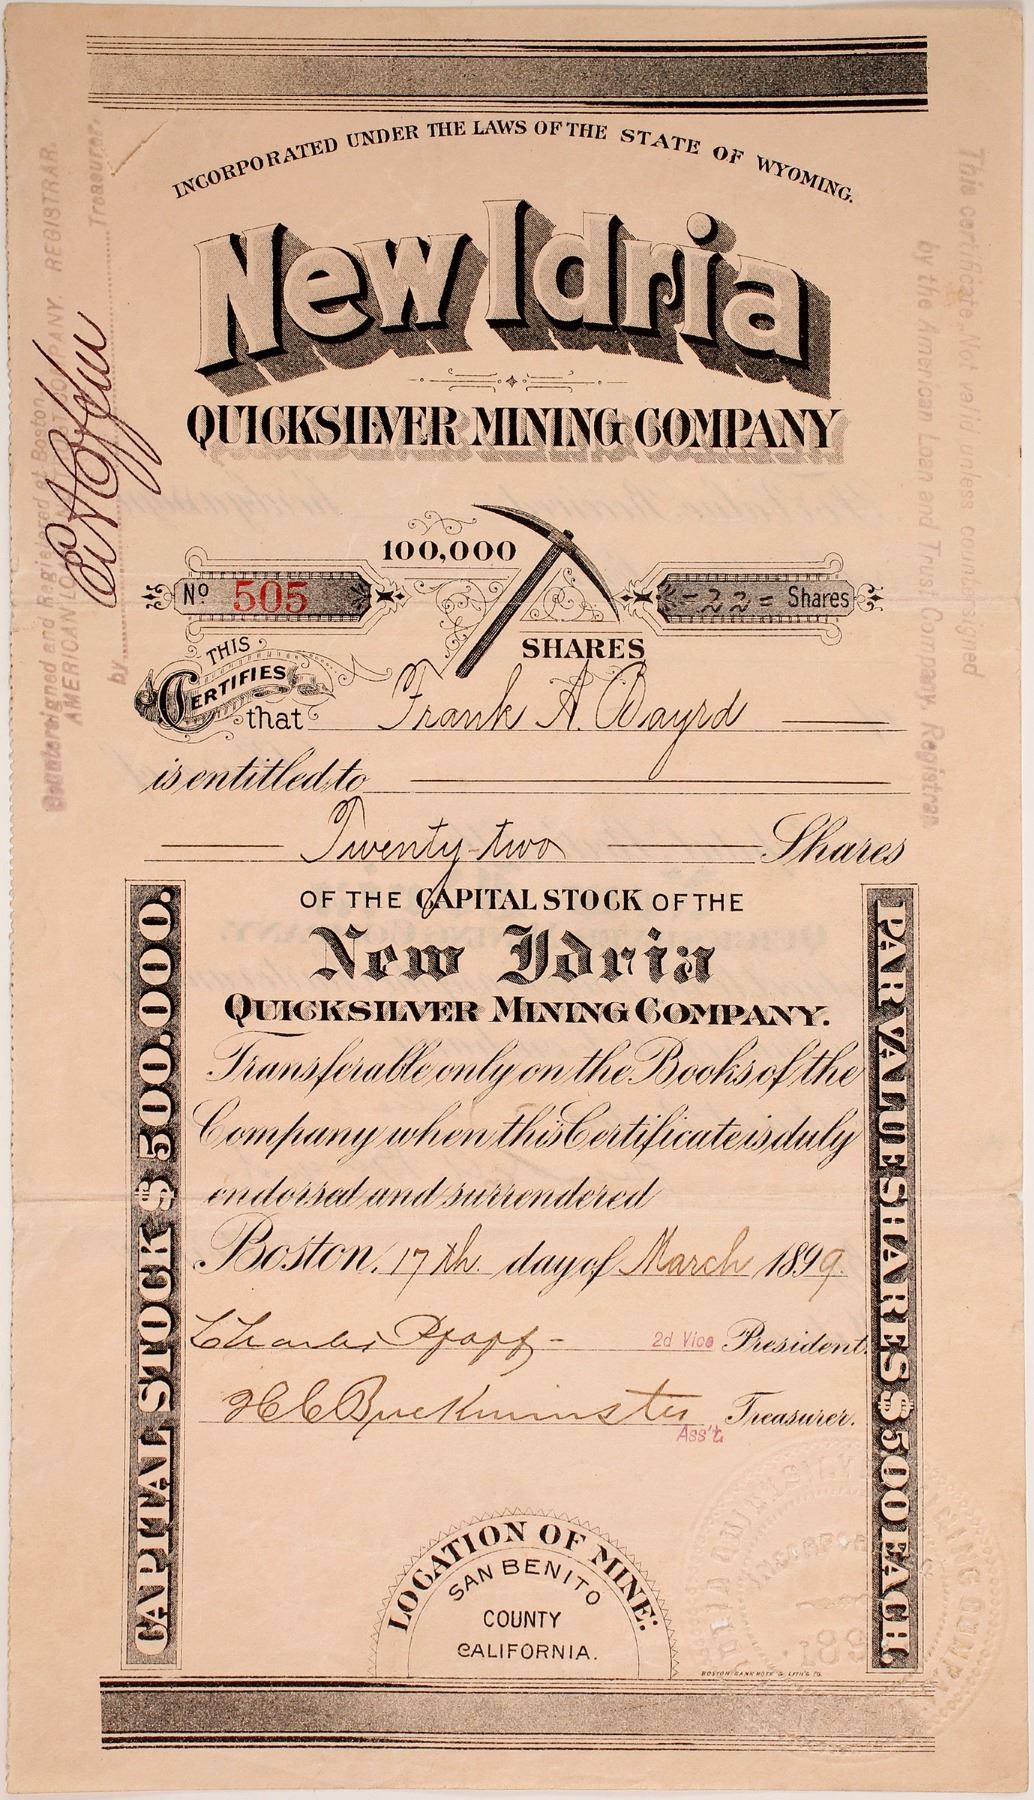 INCORPORATED UNDER THE LAWS OF THE STATE OF WYOMING.
New Idria
QUICKSILVER MINING COMPANY
100,000
SHARES
No 505
-22= Shares
THIS
CERTIFIES
that Frank A. Bayrd
is entitled to
Twenty-two Shares
OF THE CAPITAL STOCK OF THE
New Idria
QUICKSILVER MINING COMPANY.
Transferable only on the Books of the
Company when this Certificate is duly
endorsed and surrendered
Boston, 17th. day of March 1899.
Charles Pfaff- 2d Vice President.
H C Buckminster Treasurer.
Ass't
CAPITAL STOCK $500.000.
PAR VALUE SHARES $500 EACH.
LOCATION OF MINE:
SAN BENITO
COUNTY
CALIFORNIA.
BOSTON BANK NOTE & LITH'G CO.
Countersigned and Registered at Boston
AMERICAN LOAN AND TRUST COMPANY. REGISTRAR.
by Treasurer
This certificate Not valid unless countersigned
by the American Loan and Trust Company, Registrar